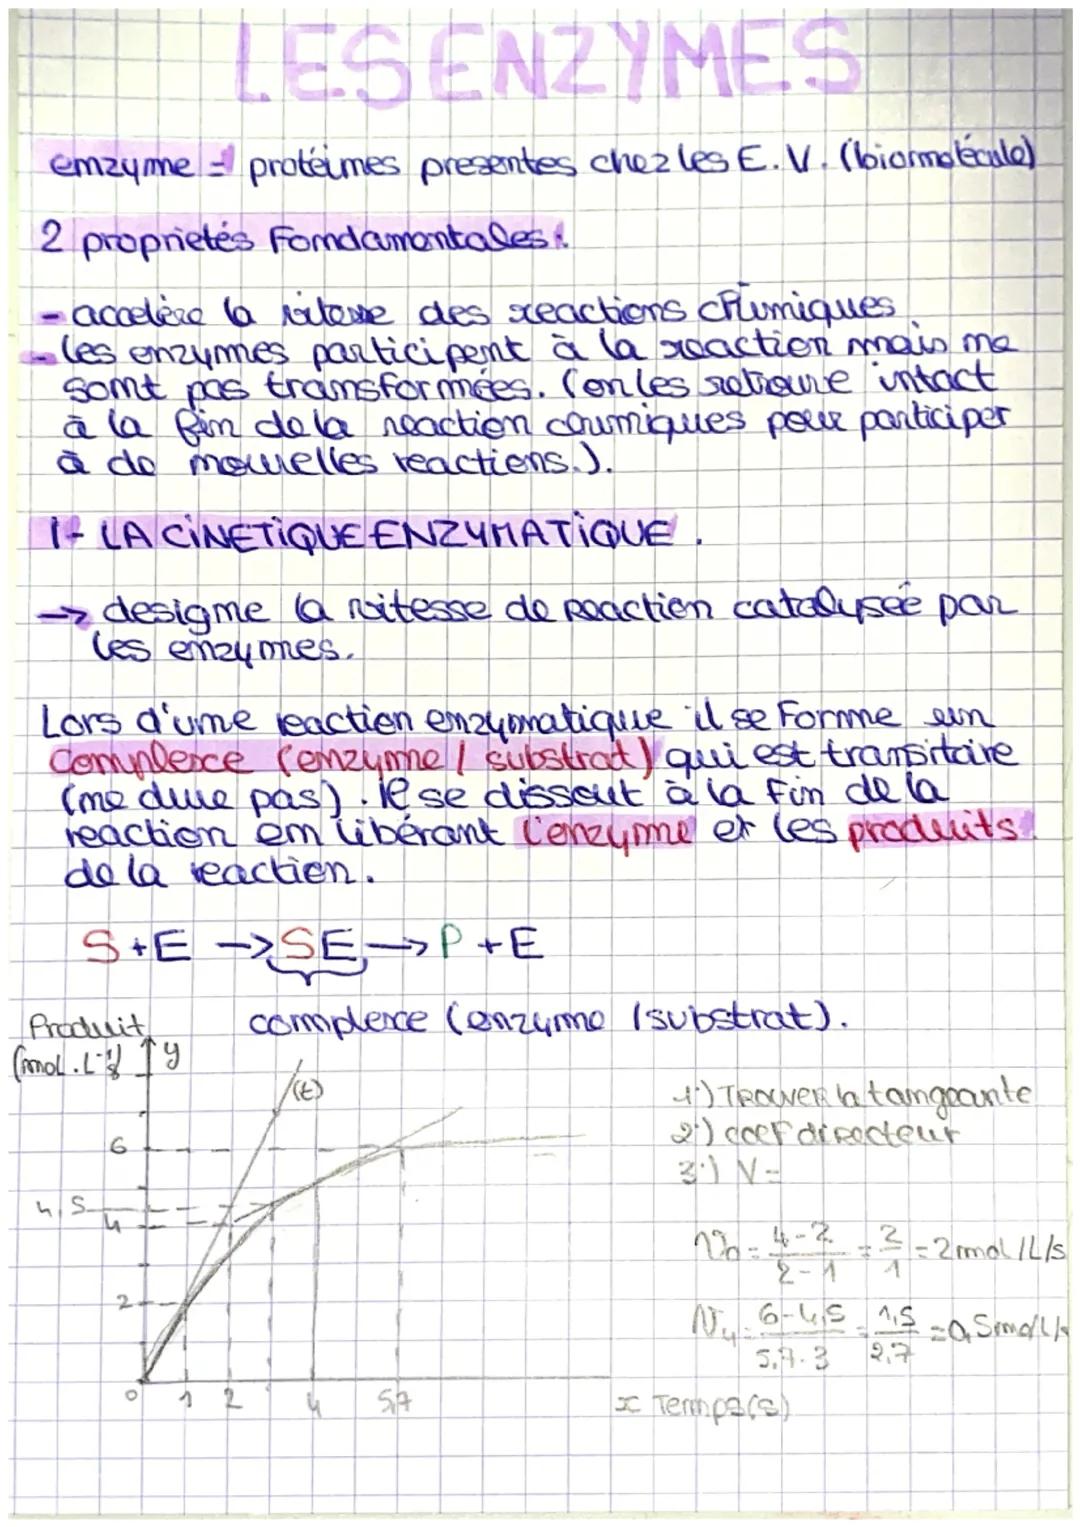 LES ENZYMES
emzyme = protéimes presentes chez les E.V. (biomolécule)
2 proprietés Fomdamentales :
- accelère la vitesse des reactions chimiques.
- les enzymes participent à la reaction mais me
somt pas transformées. (on les retrouve intact
à la fin de la reaction chimiques pour participer
à de mouvelles reactions.).
1- LA CiNETiQUE ENZYMATiQUE.
→ desigme la vitesse de reaction catalysée par
les enzymes.
Lors d'ume reaction enzymatique il se Forme un
Complexe (enzyme / substrat) qui est transitaire
(me dure pas). Il se dissout à la fin de la
reaction em libérant l'enzyme et les produits
de la reaction.
S+E → SE → P + E
complexe (enzyme /substrat).
Produit
(mol.L⁻¹) y
(t)
1°) TROUVER la tangeante
2°) coef directeur
3°) V=
6
4,5
4
2
V0 = 4-2 / 2-1 = 2/1 = 2 mol/L/s
V4 = 6-4,5 / 5,7-3 = 1,5/2,7 = 0,5mol/L/s
0 1 2 4 5,7 x Temps(s)